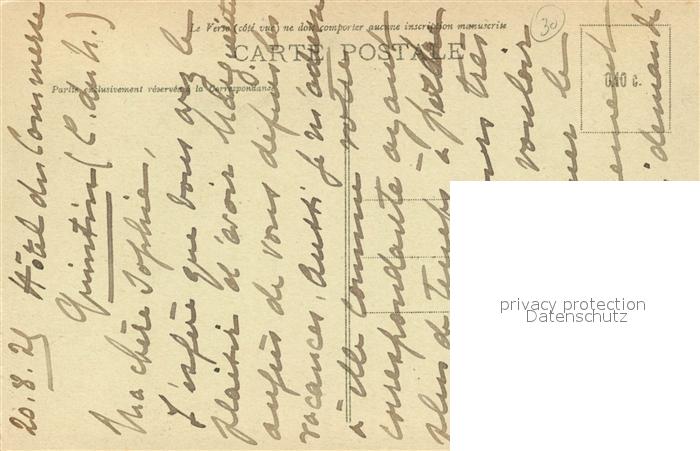 Le Verso (côté vue) ne doit comporter aucune inscription manuscrite
CARTE POSTALE
Partie exclusivement réservée à la Correspondance
30
0.10 c.
20.8.25 Hôtel du Commerce
Quintin (C. du N.)
Ma chère Sophie,
J'espère que vous avez le
plaisir d'avoir
auprès de vous depuis les
vacances, Aussi je m'adresse
à elle comme votre
correspondante ayant
plus de temps à perdre
très
vouloir
le
demande
privacy protection
Datenschutz